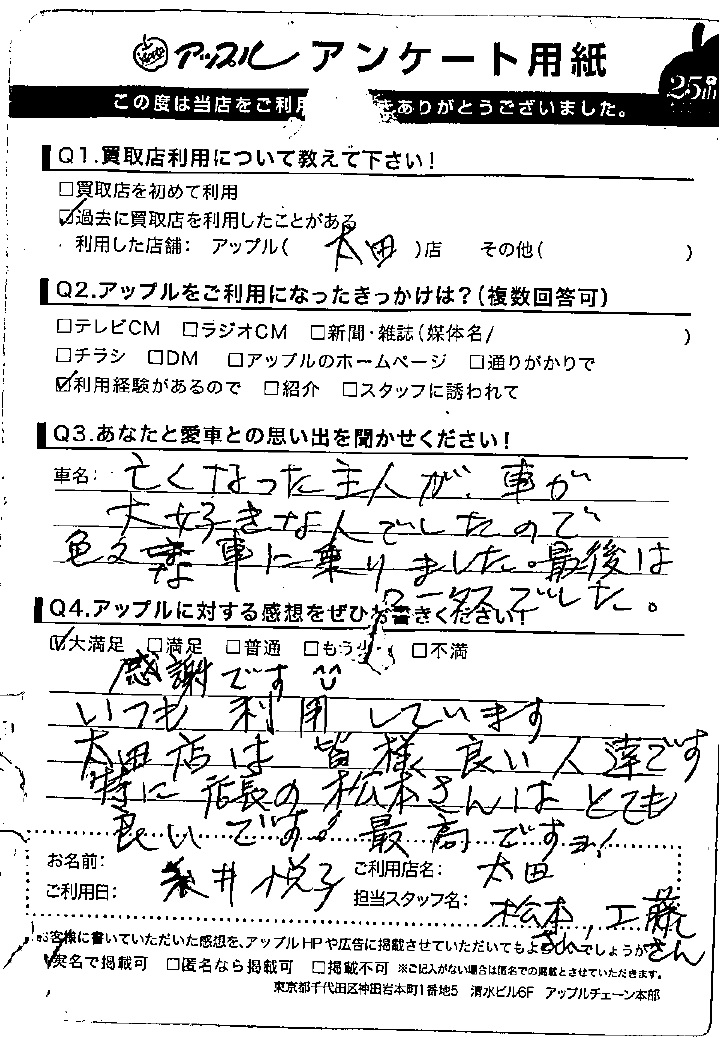 Apple アップル アンケート用紙
25th
この度は当店をご利用 きありがとうございました。
Q1.買取店利用について教えて下さい!
□買取店を初めて利用
☑過去に買取店を利用したことがある
利用した店舗: アップル( 太田 )店 その他( )
Q2.アップルをご利用になったきっかけは?(複数回答可)
□テレビCM □ラジオCM □新聞・雑誌(媒体名/ )
□チラシ □DM □アップルのホームページ □通りがかりで
☑利用経験があるので □紹介 □スタッフに誘われて
Q3.あなたと愛車との思い出を聞かせください!
車名: 亡くなった主人が、車が
大好きな人でしたので
色々な車に乗りました。最後は
ワークスでした。
Q4.アップルに対する感想をぜひお書きください!
☑大満足 □満足 □普通 □もう少し □不満
感謝です
いつも利用しています
太田店は皆様良い人達です
特に店長の松本さんはとても
良いです。最高ですョ!
お名前: 糸井悦子 ご利用店名: 太田
ご利用日: 担当スタッフ名: 松本さん、工藤さん
お客様に書いていただいた感想を、アップルHPや広告に掲載させていただいてもよろしいでしょうか
☑実名で掲載可 □匿名なら掲載可 □掲載不可 ※ご記入がない場合は匿名での掲載とさせていただきます。
東京都千代田区神田岩本町1番地5 清水ビル6F アップルチェーン本部